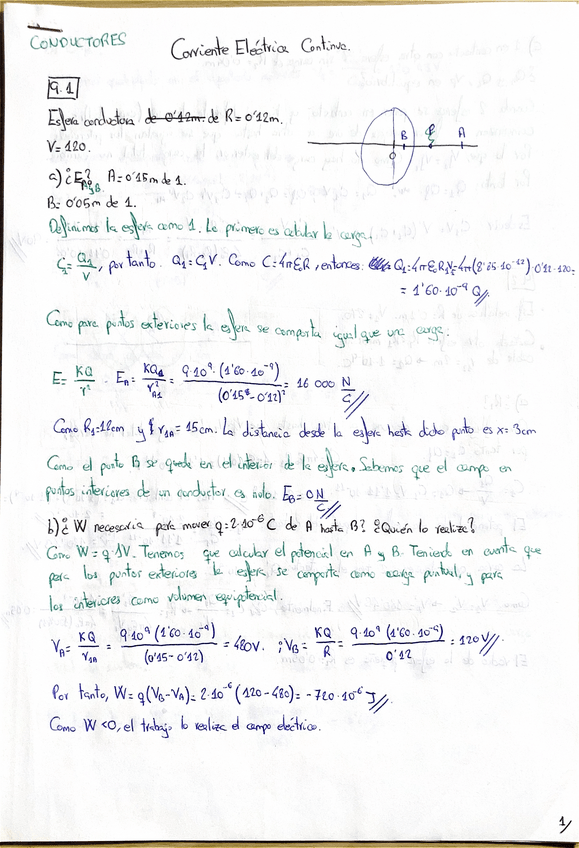 CONDUCTORES
Corriente Eléctrica Continua.
9.1
Esfera conductora de 0'12m. de R = 0'12m.
V = 120.
a) ¿E? A y B. A = 0'15m de 1.
B = 0'05m de 1.
B A
O
Definimos la esfera como 1. Lo primero es calcular la carga.
C₁ = Q₁/V, por tanto. Q₁ = C₁V. Como C = 4πε₀R, entonces. Q₁ = 4πε₀R₁V₁ = 4π(8'85·10⁻¹²)·0'12·120 =
= 1'60·10⁻⁹ C//.
Como para puntos exteriores la esfera se comporta igual que una carga:
E = KQ/r² . E_A = KQ₁/r²_A1 = 9·10⁹·(1'60·10⁻⁹)/(0'15-0'12)² = 16 000 N/C//
Como R₁ = 12cm y r₁A = 15cm. La distancia desde la esfera hasta dicho punto es x = 3cm
Como el punto B se queda en el interior de la esfera. Sabemos que el campo en
puntos interiores de un conductor es nulo. E_B = 0 N/C//
b) ¿W necesaria para mover q = 2·10⁻⁶ C de A hasta B? ¿Quién lo realiza?
Como W = q·ΔV. Tenemos que calcular el potencial en A y B. Teniendo en cuenta que
para los puntos exteriores la esfera se comporta como carga puntual, y para
los interiores como volumen equipotencial.
V_A = KQ/r₁A = 9·10⁹(1'60·10⁻⁹)/(0'15-0'12) = 480V. ; V_B = KQ/R = 9·10⁹(1'60·10⁻⁹)/0'12 = 120V//.
Por tanto, W = q(V_B-V_A) = 2·10⁻⁶(120-480) = -720·10⁻⁶ J//.
Como W<0, el trabajo lo realiza el campo eléctrico.
1/